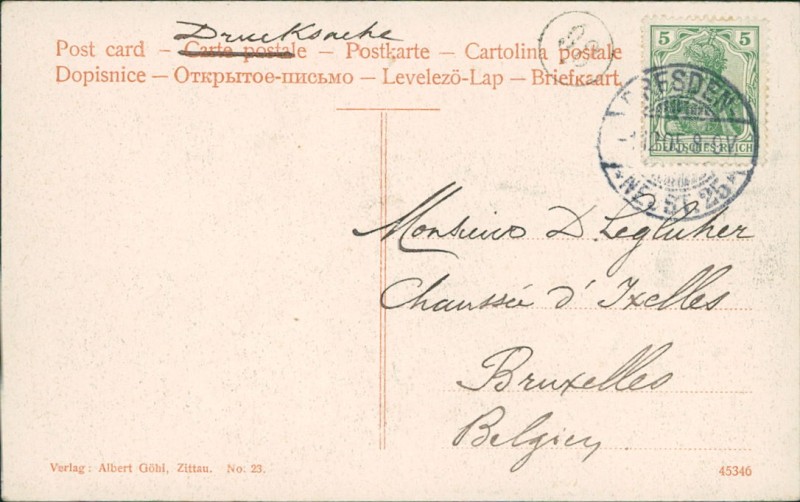 Drucksache
Post card – Carte postale – Postkarte – Cartolina postale
Dopisnice – Открытое-письмо – Levelezö-Lap – Briefkaart.
5 5
DEUTSCHES REICH
DRESDEN
25
Monsieur D.
Chaussée d'Ixelles
Bruxelles
Belgien
Verlag: Albert Göhl, Zittau. No: 23.
45346